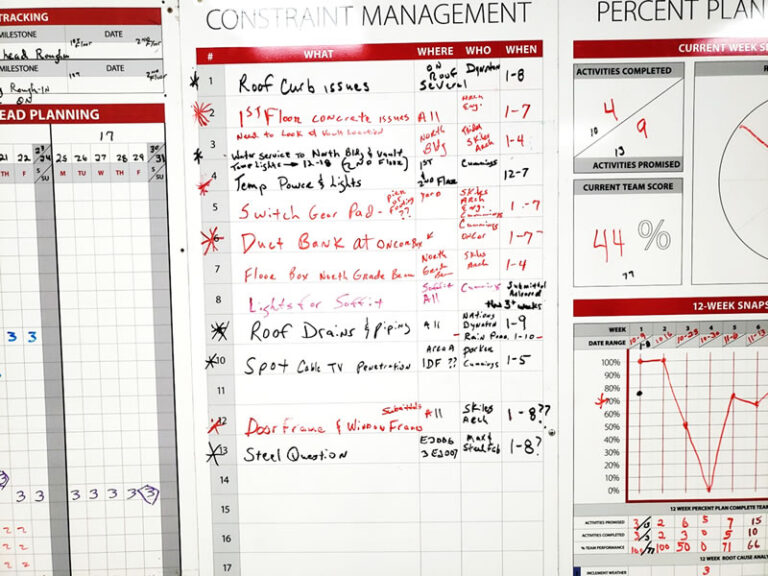 TRACKING
MILESTONE
1ST Floor
DATE
2ND Floor
head Rough
MILESTONE
1ST
DATE
2ND Floor
Rough-IN
EAD PLANNING
17
21 22 23/24 25 26 27 28 29 30/31
TH F S/SU M T W TH F S/SU
3 3
3 3 3 3 3 3 3
CONSTRAINT MANAGEMENT
# WHAT WHERE WHO WHEN
1 Roof Curb issues ON Roof Several Dynaten 1-8
2 1ST Floor concrete issues All Arch Eng. 1-7
Need to Look at Vault Location
3 Water service to North Bldg & Vault North Bldg Skiles Arch 1-4
Temp Lights → 12-18 (2ND Floor)
4 Temp Power & Lights 1ST & 2ND Floor Cummings 12-7
5 Switch Gear Pad - Pier or Footing ?? Yard Skiles Arch Eng. Cummings 1-7
6 Duct Bank at Oncor Box Cummings Oncor 1-7
7 Floor Box North Grade Beam North Grade Skiles Arch 1-4
8 Lights for Soffit Soffit All Cummings Submittal
9 Roof Drains & Piping All Nations Dynaten 1-9
1-10
10 Spot Cable TV Penetration Area A IDF ?? Cummings 1-5
11
12 Door Frame & Window Frames Submittals All Skiles Arch 1-8??
13 Steel Question E3006 3 E3007 1-8?
14
15
16
17
PERCENT PLAN
CURRENT WEEK SE
ACTIVITIES COMPLETED
4
10
9
13
ACTIVITIES PROMISED
CURRENT TEAM SCORE
44 %
77
12-WEEK SNAPS
WEEK 1 2 3 4 5 6
DATE RANGE 10-9 10-16 10-25 10-30 11-6 11-13
1-8
100%
90%
80%
70%
60%
50%
40%
30%
20%
10%
0%
12 WEEK PERCENT PLAN COMPLETE TEAM
ACTIVITIES PROMISED 3/13 2 6 5 7 15
ACTIVITIES COMPLETED 3/10 2 3 0 5 10
% TEAM PERFORMANCE 100/77 100 50 0 71 66
12 WEEK ROOT CAUSE ANALY
1 INCLEMENT WEATHER 3